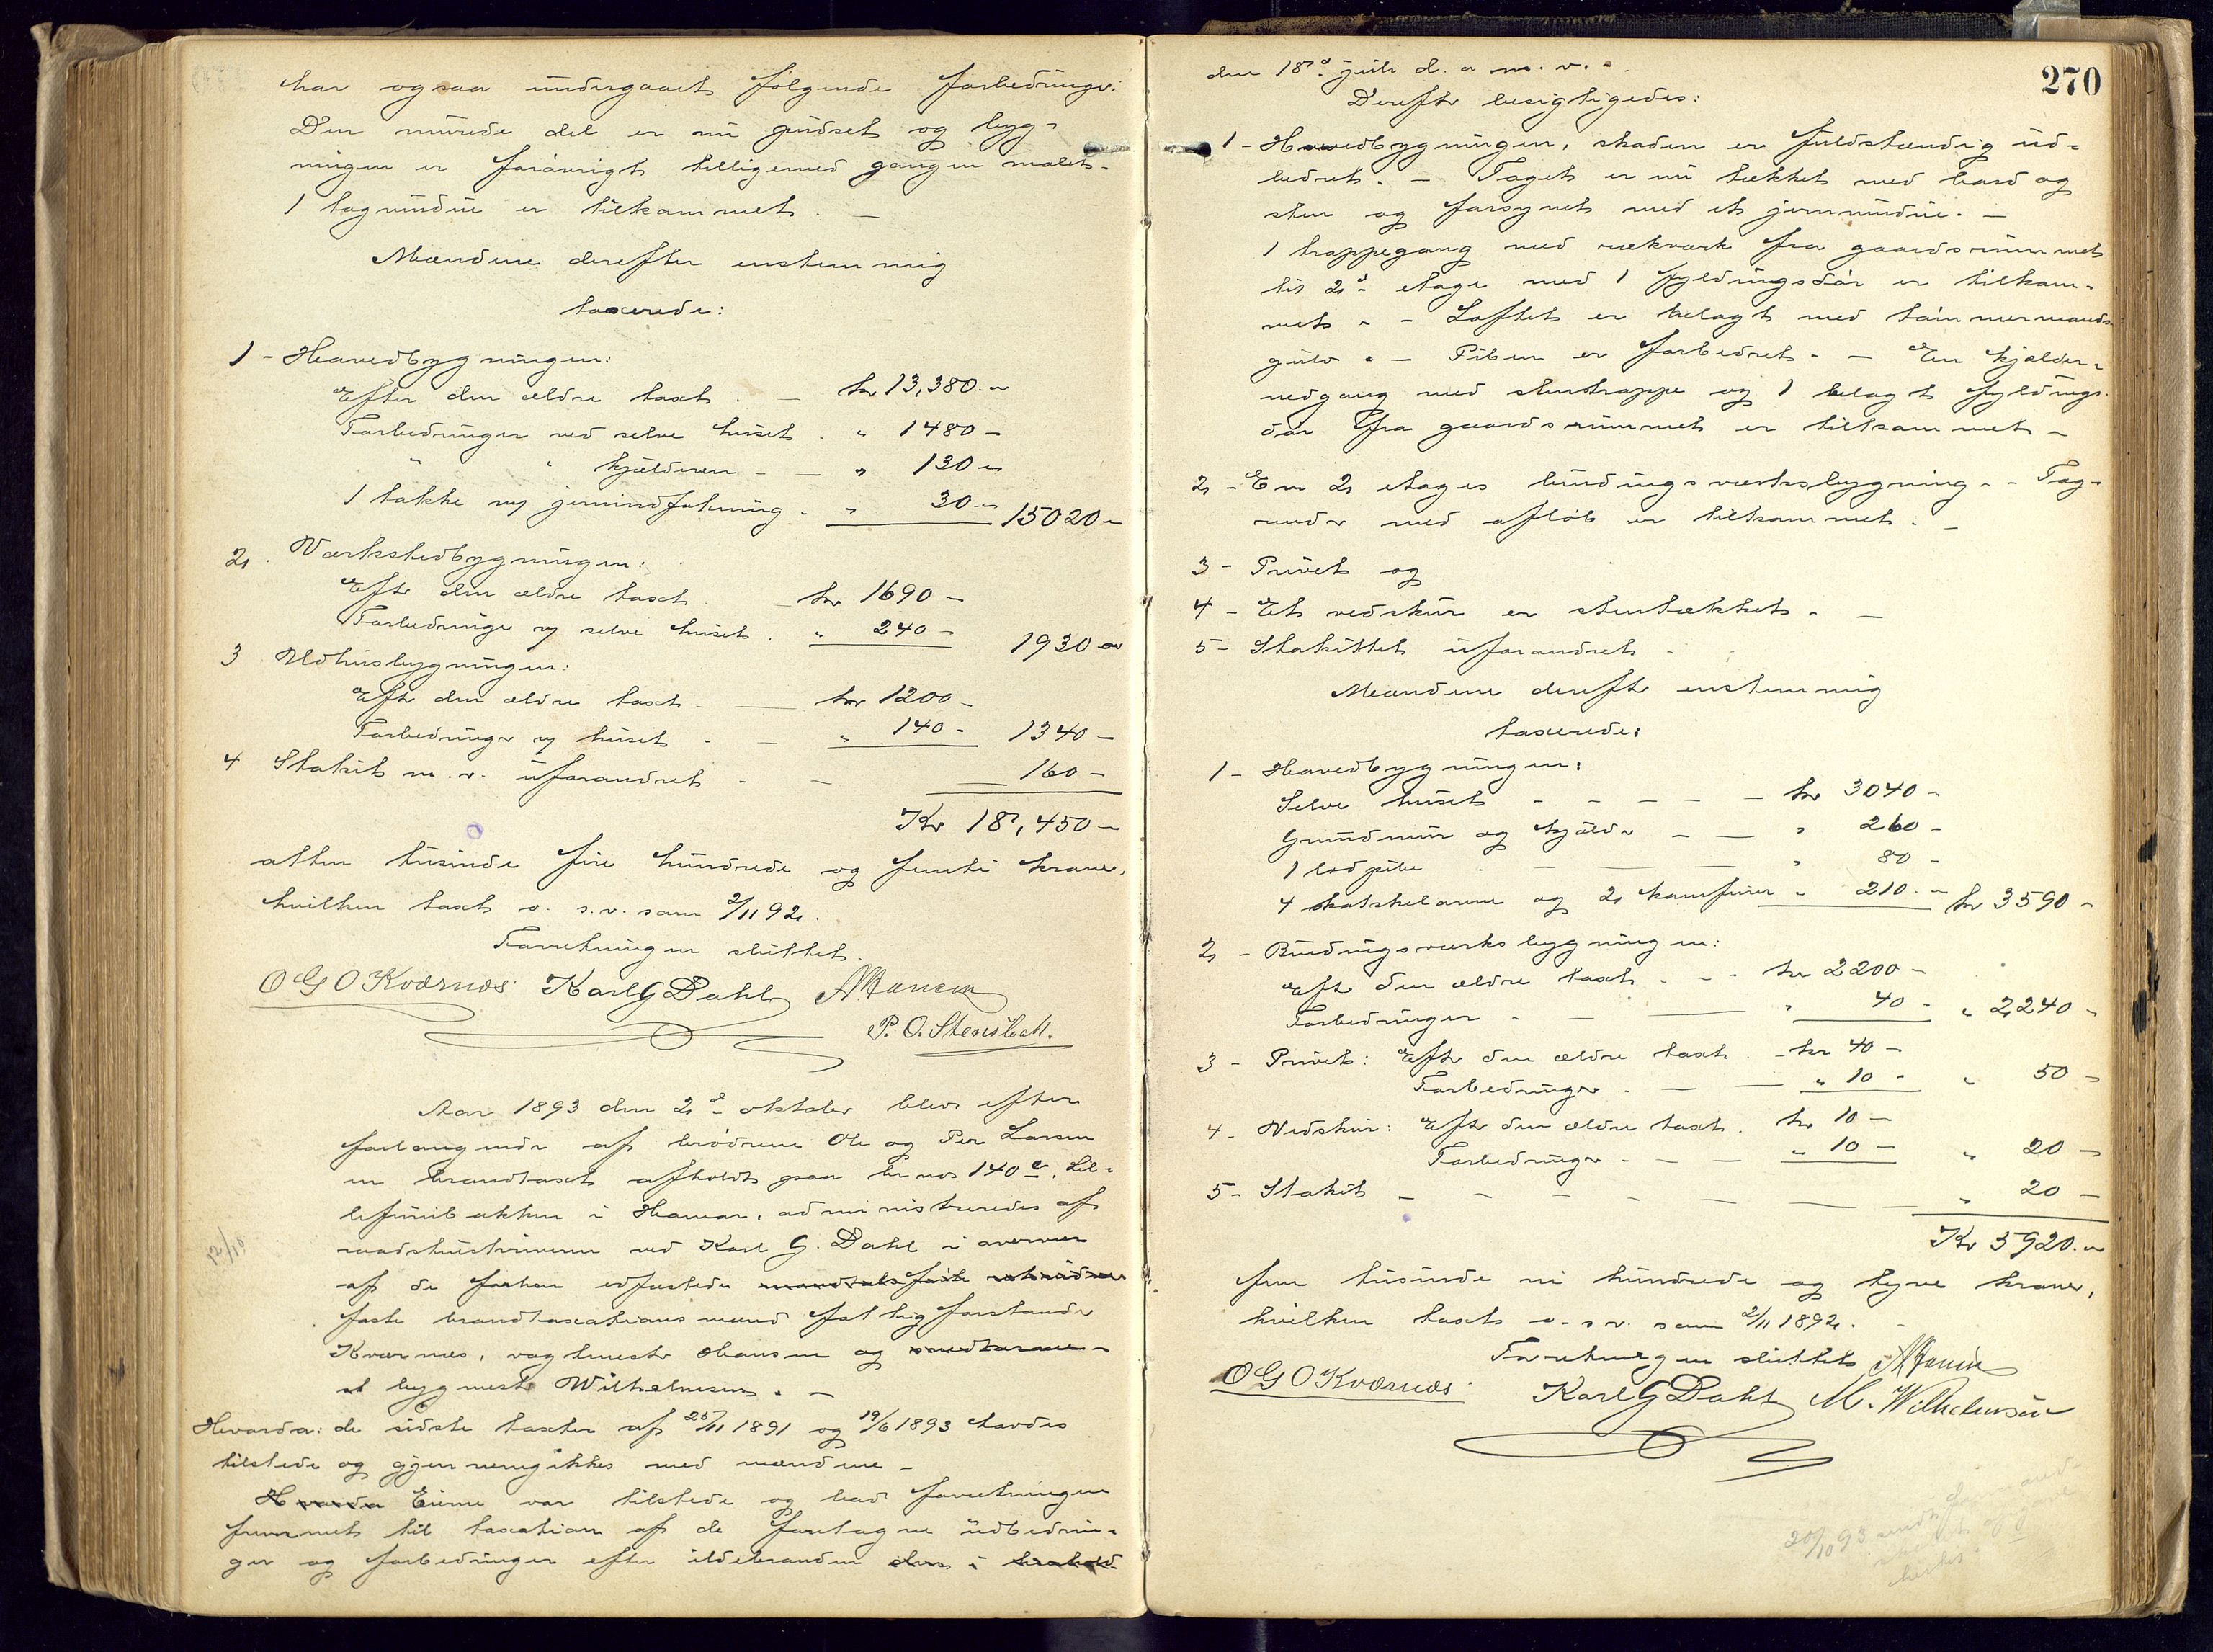 har ogsaa undergaaet følgende forbedringer:
Den murede del er nu pudset og byg-
ningen er forøvrigt tilligemed gangen malet.
1 tagvindue er tilkommet. —
Mændene derefter enstemmig
taxerede:
1 - Hovedbygningen:
Efter den ældre taxt . — kr 13,380.-
Forbedringer ved selve huset . " 1480 -
" " kjælderen - — " 130 -
1 takke ny jernindfatning - " 30 - 15020 -
2 . Værkstedbygningen:
Eftr den ældre taxt . — kr 1690 -
Forbedringer selve huset . " 240 - 1930 -
3 Udhusbygningen:
Eftr den ældre taxt - — kr 1200 -
Forbedringer huset - — " 140 - 1340 -
4 Stakit m. v. uforandret - — 160 -
Kr 18,450 -
atten tusinde fire hundrede og femti kroner,
hvilken taxt o. s. v. som 2/11 92.
Forretningen sluttet.
O G O Kværnæs Karl G Dahl A Hansen
P. O. Stensbech.
Aar 1893 den 2d oktober blev efter
forlangende af brødrene Ole og Per Larsen
en brandtaxt afholdt paa br no 140 e. Lil-
i Hamar, administreredes af
raadstuskriveren ved Karl G. Dahl i overvær
af de forhen edfæstede
faste brandtaxationsmænd fattigforstander
Kværnæs, vagtmester Hansen og
bygmestr Wilhelmsen. —
Hvorda: de sidste taxter af 25/11 1891 og 19/6 1893 havdes
tilstede og gjennemgikkes med mændene -
Hvorda Eierne var tilstede og bad forretningen
fremmet til taxation af de foretagne udbedrin-
ger og forbedringer efter ildebranden den i
12/10
270
den 18d juli d. a m. v. -
Dereftr besigtigedes:
1 - Hovedbygningen, skaden er fuldstændig ud-
bedret. — Taget er nu tækket med bord og
sten og forsynet med et jernvindue. —
1 trappegang med rækværk fra gaardsrummet
til 2d etage med 1 fyldingsdør er tilkom-
met. - Loftet er belagt med tømmermands-
gulv. — Piben er forbedret. — En kjælder-
nedgang med stentrappe og 1 belagt fyldings-
dør fra gaardsrummet er tilkommet -
2 - En 2 etages bindingsværksbygning. - Tag-
render med afløb er tilkommet. —
3 - Privet og
4 - Et vedskur er stentækket. —
5 - Stakittet uforandret -
Mændene dereftr enstemmig
taxerede:
1 - Hovedbygningen:
Selve huset - - - - — kr 3040 -
Grundmur og kjælder — — " 260 -
1 lodpibe . — — — " 80 -
4 og 2 kamfiner " 210.- kr 3590 -
2 - Bindingsværksbygningen:
Eftr den ældre taxt . - - kr 2200 -
Forbedringer - — — " 40 - " 2,240 -
3 - Privet: Eftr den ældre taxt. - kr 40 -
Forbedringer - — — " 10 - " 50 -
4 - Vedskur: Eftr den ældre taxt. kr 10 -
Forbedringer - — — " 10 - " 20 -
5 - Stakit - - - - — — " 20 -
Kr 5920.-
fem tusinde ni hundrede og tyve kroner,
hvilken taxt o. s v. som 2/11 1892. -
Forretningen sluttet A Hansen
O G O Kværnæs Karl G Dahl M. Wilhelmsen
20/10 93 sendt